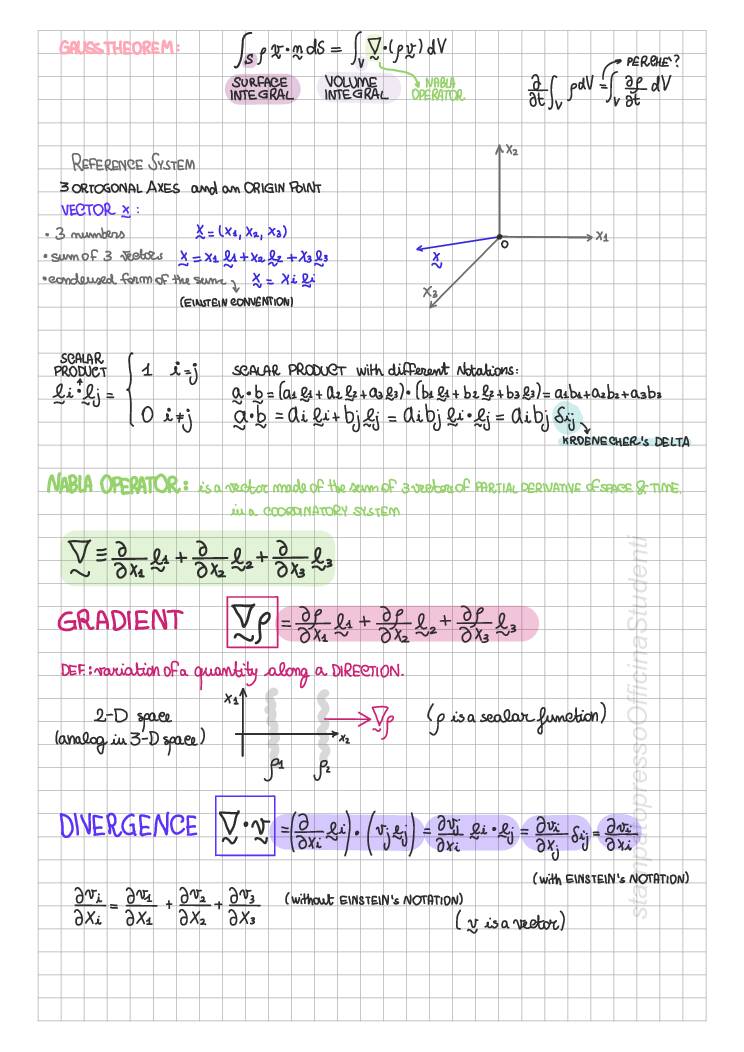 GAUSS THEOREM: ∫_S ρ v·n dS = ∫_V ∇·(ρ v) dV
SURFACE INTEGRAL
VOLUME INTEGRAL
NABLA OPERATOR
PERCHE'?
∂/∂t ∫_V ρ dV = ∫_V ∂ρ/∂t dV
REFERENCE SYSTEM
3 ORTOGONAL AXES and an ORIGIN POINT
VECTOR x:
• 3 numbers x = (x1, x2, x3)
• sum of 3 vectors x = x1 e1 + x2 e2 + x3 e3
• condensed form of the sum x = xi ei
(EINSTEIN CONVENTION)
x2
x1
O
x
x3
SCALAR PRODUCT
ei · ej = { 1 i=j
0 i≠j
SCALAR PRODUCT with different Notations:
a · b = (a1 e1 + a2 e2 + a3 e3) · (b1 e1 + b2 e2 + b3 e3) = a1b1 + a2b2 + a3b3
a · b = ai ei + bj ej = ai bj ei · ej = ai bj δij
KROENECHER's DELTA
NABLA OPERATOR: is a vector made of the sum of 3 vector of PARTIAL DERIVATIVE of SPACE & TIME,
in a COORDINATORY SYSTEM
∇ ≡ ∂/∂x1 e1 + ∂/∂x2 e2 + ∂/∂x3 e3
GRADIENT ∇ρ = ∂ρ/∂x1 e1 + ∂ρ/∂x2 e2 + ∂ρ/∂x3 e3
DEF.: variation of a quantity along a DIRECTION.
2-D space
(analog in 3-D space)
x1
x2
ρ1
ρ2
∇ρ
(ρ is a scalar function)
DIVERGENCE ∇·v = (∂/∂xi ei) · (vj ej) = ∂vj/∂xi ei · ej = ∂vi/∂xj δij = ∂vi/∂xi
(with EINSTEIN's NOTATION)
∂vi/∂xi = ∂v1/∂x1 + ∂v2/∂x2 + ∂v3/∂x3 (without EINSTEIN's NOTATION)
(v is a vector)
stampatopressoOfficinaStudenti